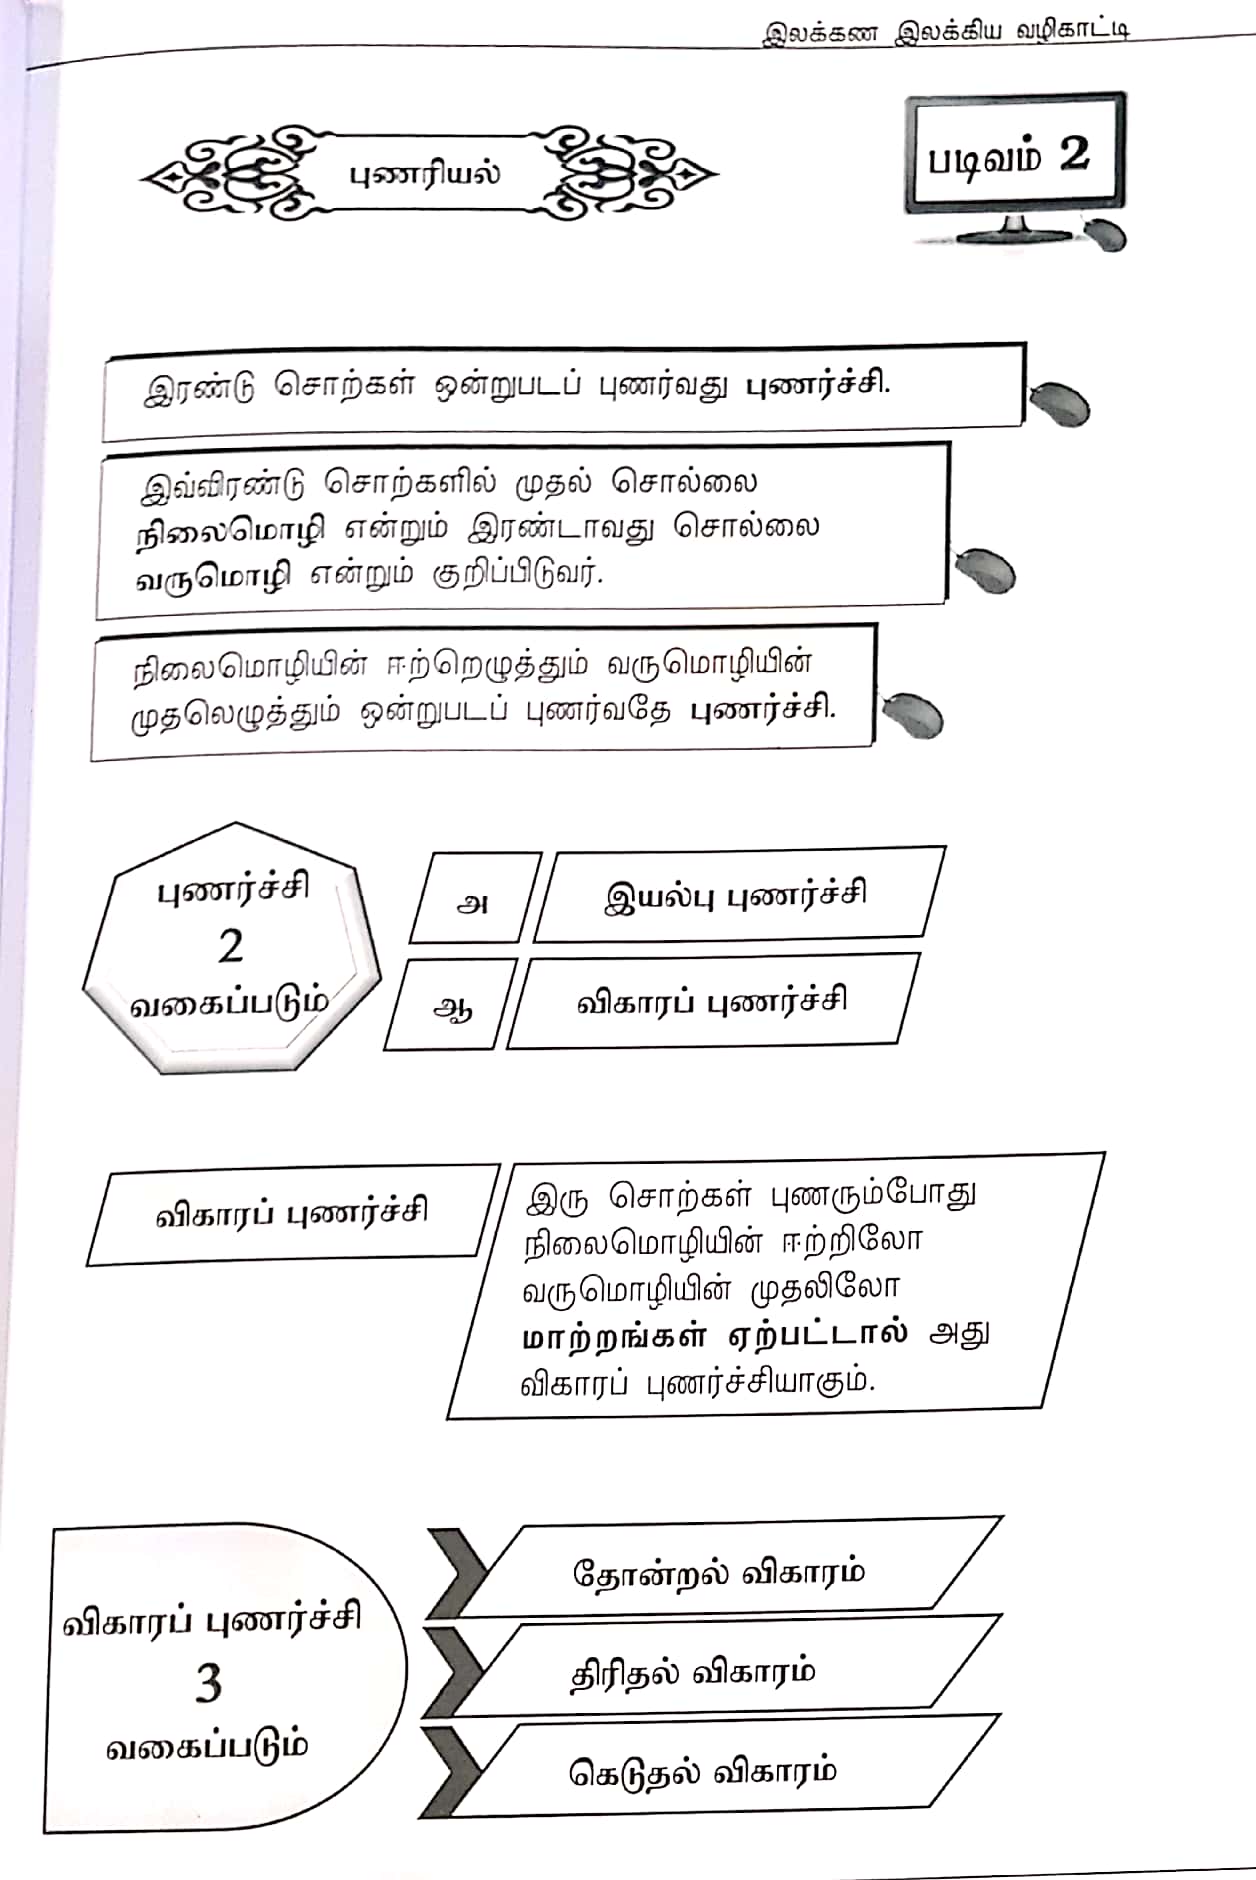 இலக்கண இலக்கிய வழிகாட்டி
புணரியல்
படிவம் 2
இரண்டு சொற்கள் ஒன்றுபடப் புணர்வது புணர்ச்சி.
இவ்விரண்டு சொற்களில் முதல் சொல்லை
நிலைமொழி என்றும் இரண்டாவது சொல்லை
வருமொழி என்றும் குறிப்பிடுவர்.
நிலைமொழியின் ஈற்றெழுத்தும் வருமொழியின்
முதலெழுத்தும் ஒன்றுபடப் புணர்வதே புணர்ச்சி.
புணர்ச்சி
2
வகைப்படும்
அ
இயல்பு புணர்ச்சி
ஆ
விகாரப் புணர்ச்சி
விகாரப் புணர்ச்சி
இரு சொற்கள் புணரும்போது
நிலைமொழியின் ஈற்றிலோ
வருமொழியின் முதலிலோ
மாற்றங்கள் ஏற்பட்டால் அது
விகாரப் புணர்ச்சியாகும்.
விகாரப் புணர்ச்சி
3
வகைப்படும்
தோன்றல் விகாரம்
திரிதல் விகாரம்
கெடுதல் விகாரம்